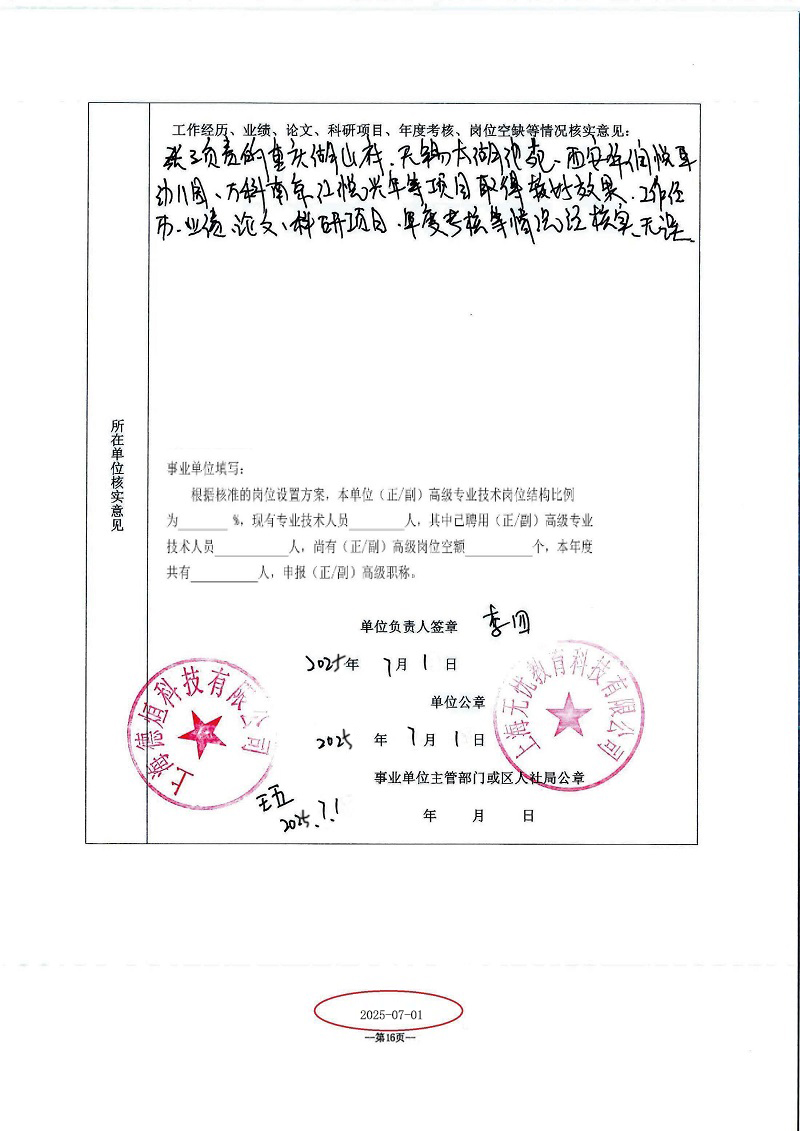 工作经历、业绩、论文、科研项目、年度考核、岗位空缺等情况核实意见：
张三负责的重庆湖山村、无锡太湖、西安华润悦享
幼儿园、万科南京江悦兴年等项目取得较好效果、工作经
历、业绩、论文、科研项目、年度考核等情况经核实、无误
所在单位核实意见
事业单位填写：
根据核准的岗位设置方案，本单位（正/副）高级专业技术岗位结构比例
为______ %，现有专业技术人员______人，其中已聘用（正/副）高级专业
技术人员______人，尚有（正/副）高级岗位空额______个，本年度
共有______人，申报（正/副）高级职称。
单位负责人签章 李四
2025年 7月1日
单位公章
2025 年 7月1日
事业单位主管部门或区人社局公章
年 月 日
上海德烜科技有限公司
上海无忧教育科技有限公司
王五
2025.7.1
2025-07-01
—第16页—